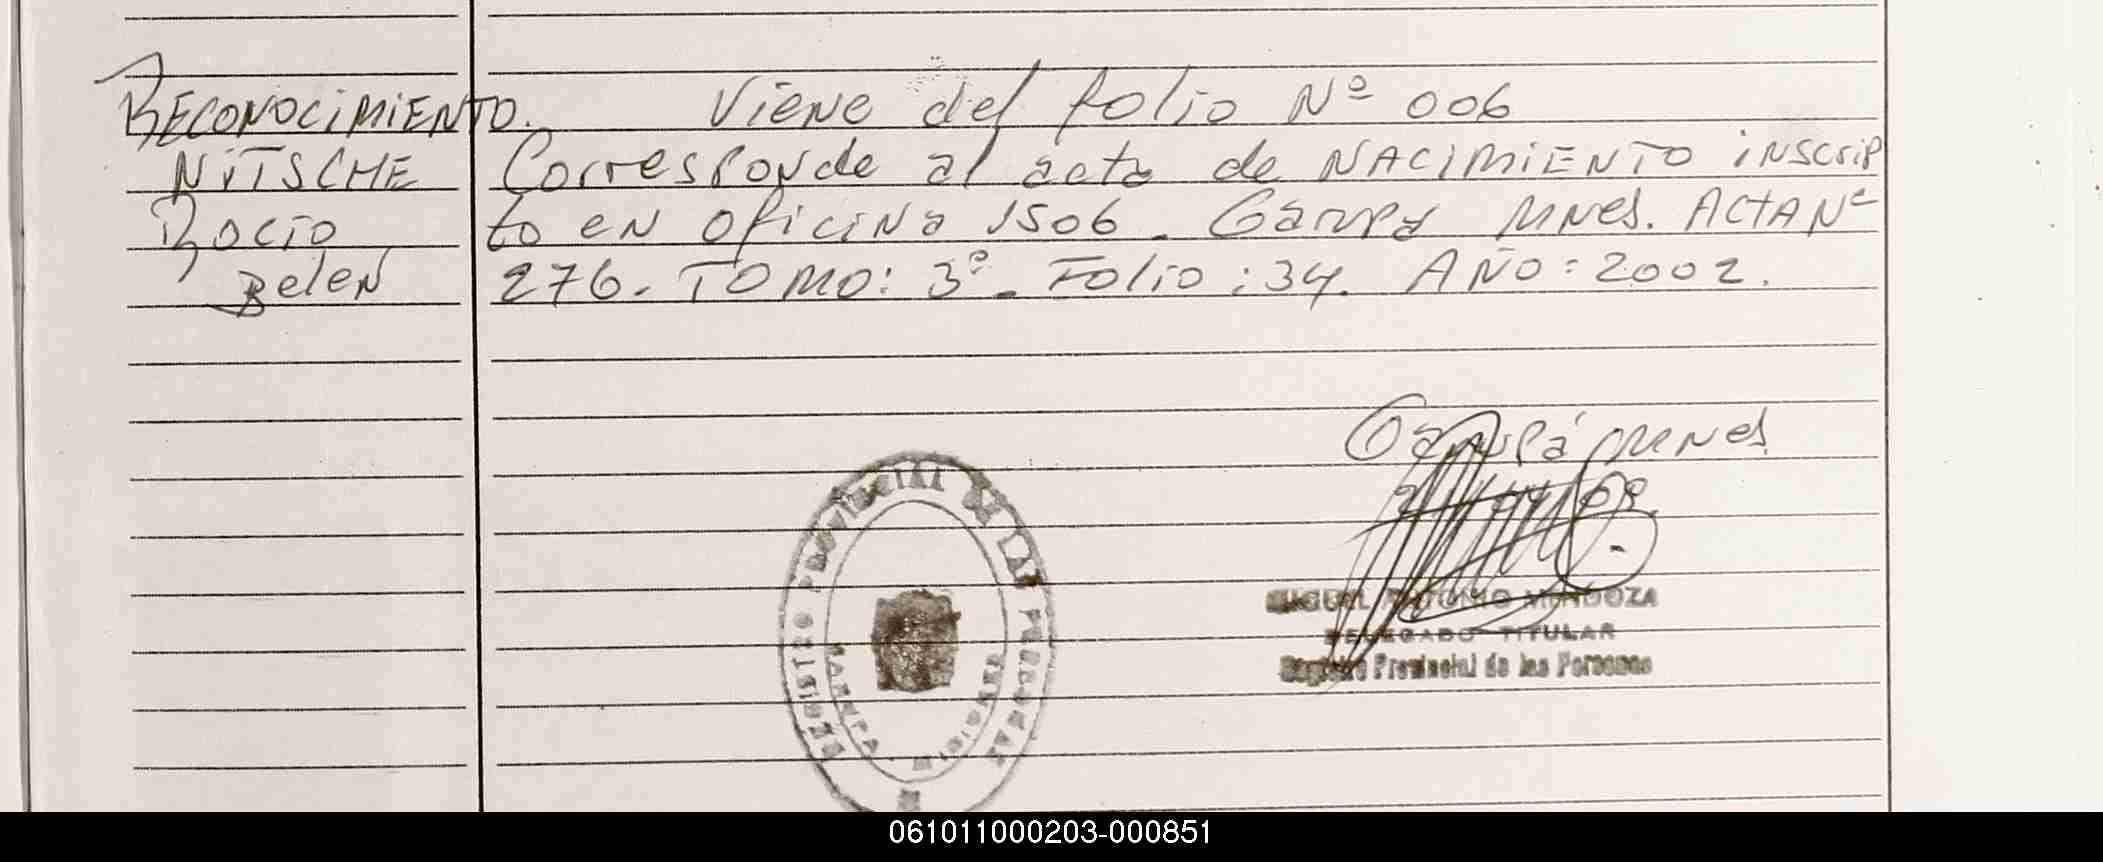 RECONOCIMIENTO. Viene del folio Nº 006
NITSCHE Corresponde al acta de NACIMIENTO inscrip
Rocio to en oficina 1506. Garupa Mnes. ACTA Nº
Belen 276. TOMO: 3º. Folio: 34. AÑO: 2002.
Garupá Mnes
REGISTRO PROVINCIAL DE LAS PERSONAS
GARUPA MISIONES
MIGUEL ANTONIO MENDOZA
DELEGADO TITULAR
Registro Provincial de las Personas
061011000203-000851